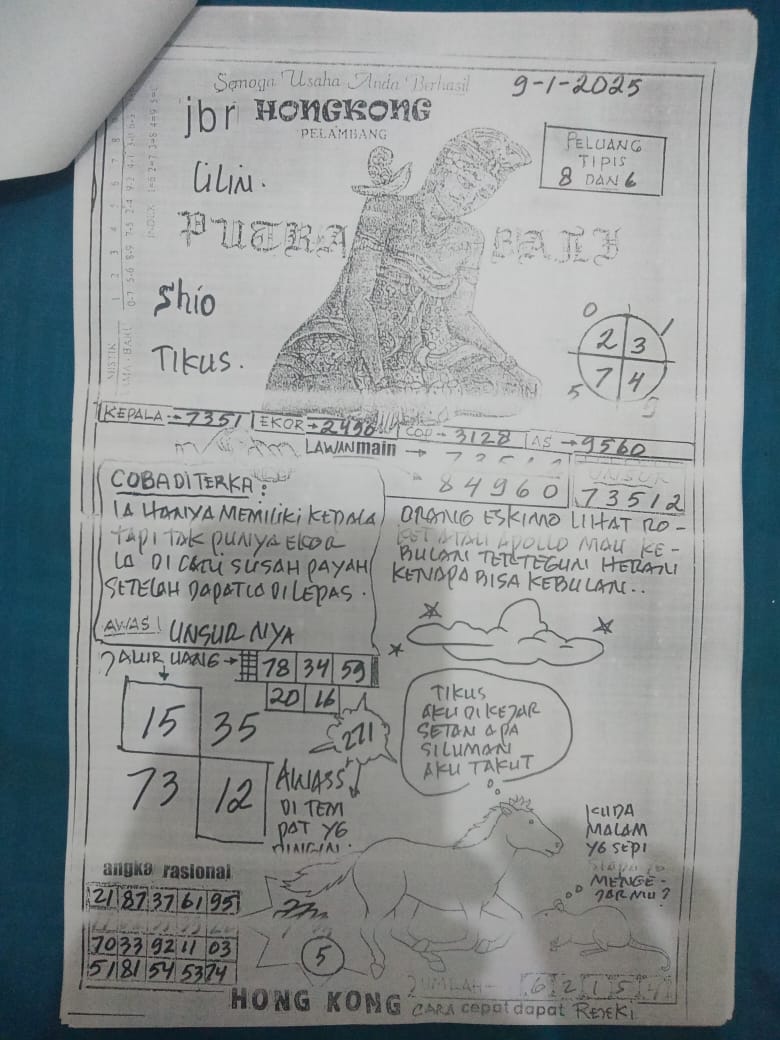 Semoga Usaha Anda Berhasil
9-1-2025
jbr HONGKONG
PELAMBANG
PELUANG
TIPIS
8 DAN 6
LILIN.
PUTRA BALI
Shio
TIKUS.
0 1
2 3
7 4
5 9
KEPALA 7351 EKOR 2496 COP 3128 AS 9560
LAWAN main
84960
73512
COBA DITERKA:
IA HANYA MEMILIKI KEPALA
TAPI TAK PUNYA EKOR
IA DI CARI SUSAH PAYAH
SETELAH DAPAT IA DILEPAS.
AWAS! UNSURNYA
ORANG ESKIMO LIHAT RO-
KET ATAU APOLLO MAU KE-
BULAN TERTEGUN HERAN
KENAPA BISA KEBULAN..
JALUR UANG 78 34 59
20 16
15 35
73 12
271
AWASS
DI TEM
PAT YG
DINGIN.
TIKUS
AKU DI KEJAR
SETAN APA
SILUMAN
AKU TAKUT
KUDA
MALAM
YG SEPI
MENGE-
JARMU?
angka rasional
21 87 37 61 95
70 33 92 11 03
51 81 54 53 74
5
JUMLAH 6 2 1 5 4
HONG KONG CARA cepat dapat REJEKI